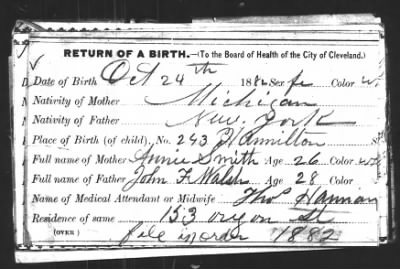 RETURN OF A BIRTH.—(To the Board of Health of the City of Cleveland.)
Date of Birth Oct 24th 1882 Sex fe Color W.
Nativity of Mother Michigan
Nativity of Father New York
Place of Birth (of child), No. 243 Hamilton St
Full name of Mother Annie Smith Age 26 Color Wh
Full name of Father John F Walsh Age 28 Color
Name of Medical Attendant or Midwife Thos Hannan
Residence of same 153 oregon St
(OVER) file in order 1882